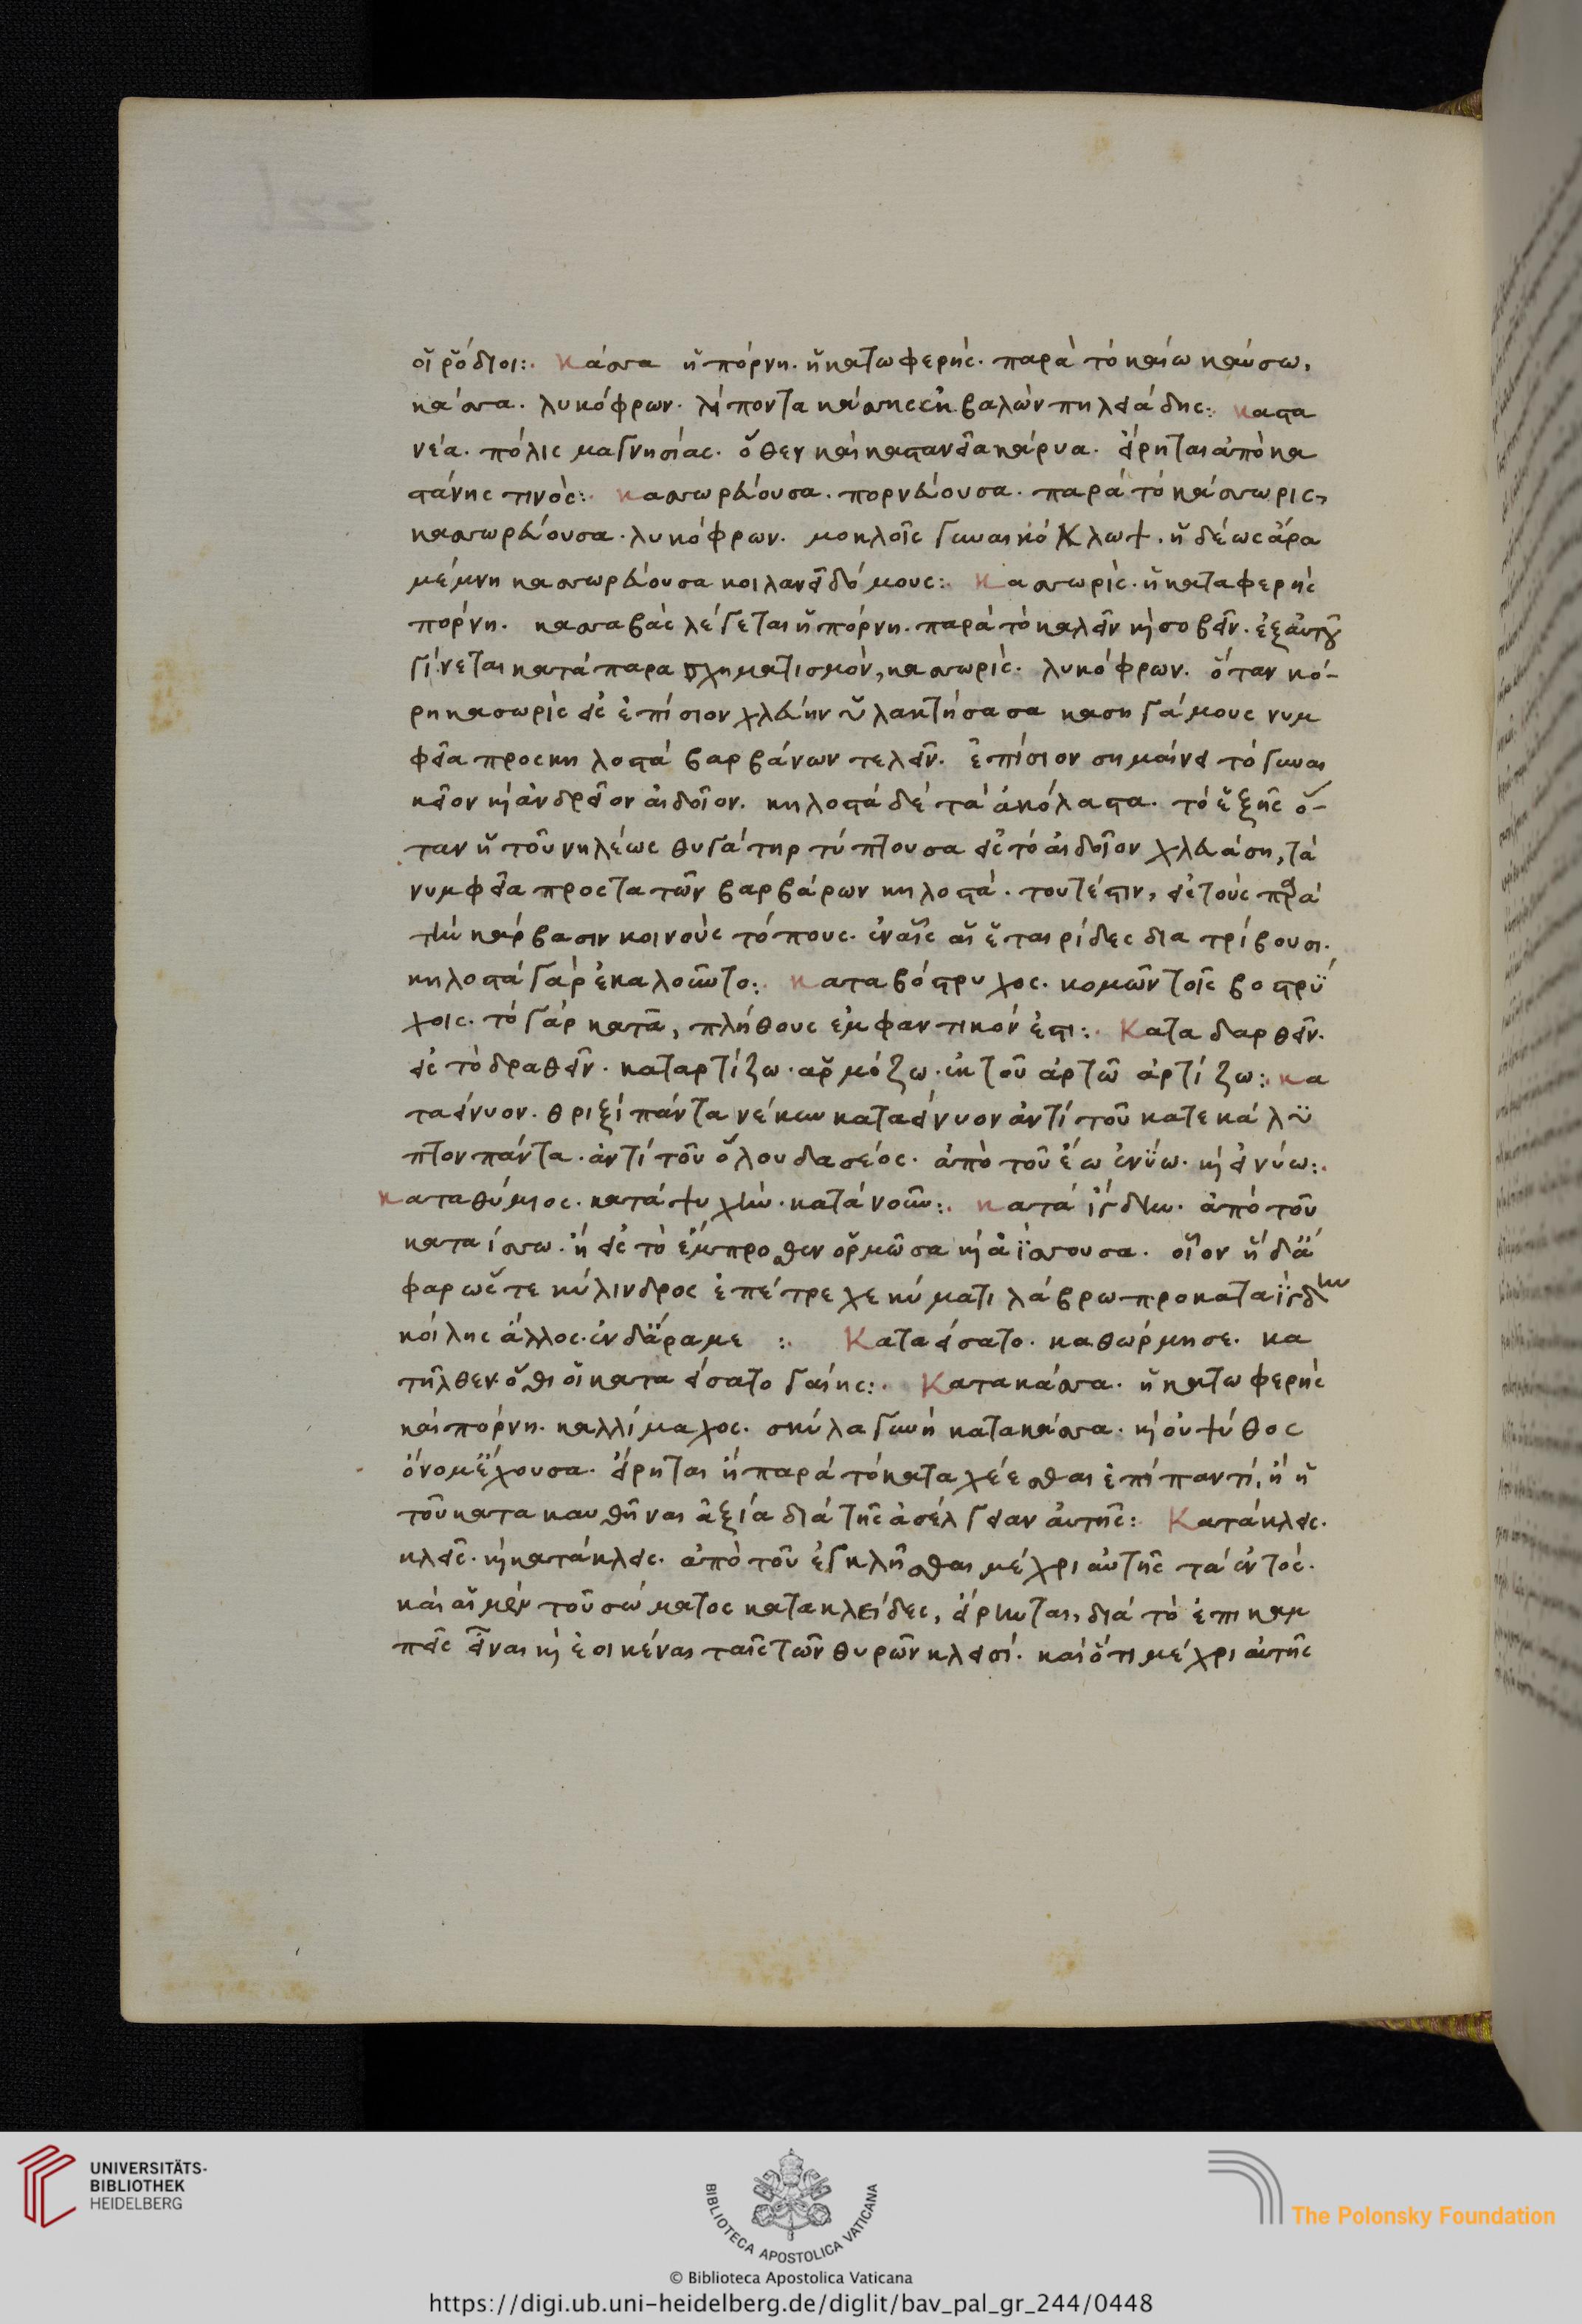 οἱ ῥόδιοι:. κάσσα ἡ πόρνη. ἡ κατωφερής. παρὰ τὸ καίω καύσω,
κάσσα. λυκόφρων. λίποντα κάσσης ἐκβαλὼν πηλειάδης:. καστα
νέα. πόλις μαγνησίας. ὅθεν καὶ καστανεῖα κάρυα. εἴρηται ἀπὸ κα
στάνης τινός:. κασσωρεύουσα. πορνεύουσα. παρὰ τὸ κάσσωρις,
κασσωρεύουσα. λυκόφρων. μοκλοῖς γυναικόκλωψ. ἡδέως ἄρα
μέμνη κασσωρεύουσα κοιλανεῖ δόμους:. κασσωρίς. ἡ καταφερής
πόρνη. κασσαβὰς λέγεται ἡ πόρνη. παρὰ τὸ καλεῖν καὶ σοβεῖν. ἐξ αὐτοῦ
γίνεται κατὰ παρασχηματισμόν, κασσωρίς. λυκόφρων. ὅταν κό-
ρη κασωρὶς εἰς ἐπίσιον χλεύην ὑλακτήσασα καση γάμους νυμ
φεῖα πρὸς κηλοστὰ βαρβάνων τελεῖν. ἐπίσιον σημαίνει τὸ γυναι
κεῖον καὶ ἀνδρεῖον αἰδοῖον. κηλοστὰ δὲ τὰ ἀκόλαστα. τὸ ἑξῆς ὅ-
ταν ἡ τοῦ νηλέως θυγάτηρ τύπτουσα εἰς τὸ αἰδοῖον χλευάση, τὰ
νυμφεῖα πρὸς τὰ τῶν βαρβάρων κηλοστά. τουτέστιν, εἰς τοὺς παρὰ
τὴν κάρβασιν κοινοὺς τόπους. ἐν αἷς αἱ ἑταιρίδες διατρίβουσι.
κηλοστὰ γὰρ ἐκαλοῦντο:. καταβόστρυχος. κομῶν τοῖς βοστρύ
χοις. τὸ γὰρ κατὰ, πλήθους ἐμφαντικόν ἐστι:. Καταδαρθεῖν.
εἰς τὸ δραθεῖν. καταρτίζω. ἁρμόζω. ἐκ τοῦ ἀρτῶ ἀρτίζω:. κα
ταείνυον. θριξὶ πάντα νέκυν καταείνυον ἀντὶ τοῦ κατεκάλυ
πτον πάντα. ἀντὶ τοῦ ὅλου δασέος. ἀπὸ τοῦ ἕω ἑνύω. καὶ εἱνύω:.
καταθύμιος. κατὰ ψυχὴν. κατὰ νοῦν:. κατὰ ἴγδην. ἀπὸ τοῦ
καταίσσω. ἡ εἰς τὸ ἔμπροσθεν ὁρμῶσα καὶ ἀΐσσουσα. οἷον ἡ δἄ
φαρ ὡς τε κύλινδρος ἐπέτρεχε κύματι λάβρω προκαταΐγδην
κοίλης ἅλλος. ἐν δἄραμε :. Καταείσατο. καθώρμησε. κα
τῆλθεν. ὅθι οἱ καταείσατο γαίης:. Κατακάσσα. ἡ κατωφερής
καὶ πόρνη. καλλίμαχος. σκύλα γυνὴ κατακάσσα. καὶ οὐ ψύθος
ὄνομ ἔχουσα. εἴρηται ἢ παρὰ τὸ καταχέεσθαι ἐπὶ παντί, ἢ ἡ
τοῦ κατακαυθῆναι ἀξία διὰ τῆς ἀσέλγειαν αὐτῆς:. Κατάκλεις.
κλεῖς. καὶ κατάκλεις. ἀπὸ τοῦ ἐγκλῆσθαι μέχρι αὐτῆς τὰ ἐντός.
καὶ αἱ μὲν τοῦ σώματος κατακλεῖδες, εἴρηνται, διὰ τὸ ἐπικαμ
πεῖς εἶναι καὶ ἐοικέναι ταῖς τῶν θυρῶν κλεισί. καὶ ὅτι μέχρι αὐτῆς
UNIVERSITÄTS-
BIBLIOTHEK
HEIDELBERG
BIBLIOTECA APOSTOLICA VATICANA
The Polonsky Foundation
© Biblioteca Apostolica Vaticana
https://digi.ub.uni-heidelberg.de/diglit/bav_pal_gr_244/0448